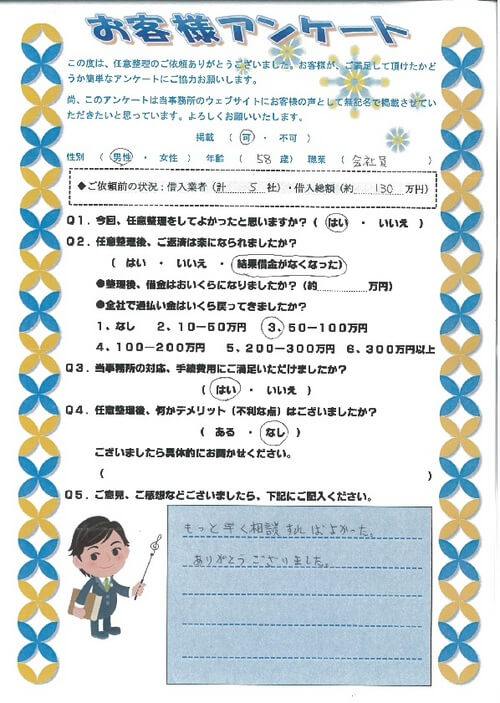 お客様アンケート
この度は、任意整理のご依頼ありがとうございました。お客様が、ご満足して頂けたかど
うか簡単なアンケートにご協力お願いします。
尚、このアンケートは当事務所のウェブサイトにお客様の声として無記名で掲載させてい
ただきたいと思っています。よろしくお願いいたします。
掲載 ( 可 ・ 不可 )
性別 ( 男性 ・ 女性 ) 年齢 ( 58 歳 ) 職業 ( 会社員 )
◆ご依頼前の状況:借入業者(計 5 社)・借入総額(約 130 万円)
Q1.今回、任意整理をしてよかったと思いますか?( はい ・ いいえ )
Q2.任意整理後、ご返済は楽になられましたか?
( はい ・ いいえ ・ 結果借金がなくなった )
●整理後、借金はおいくらになりましたか?(約 万円)
●全社で過払い金はいくら戻ってきましたか?
1、なし 2、10-50万円 3、50-100万円
4、100-200万円 5、200-300万円 6、300万円以上
Q3.当事務所の対応、手続費用にご満足いただけましたか?
( はい ・ いいえ )
Q4.任意整理後、何かデメリット(不利な点)はございましたか?
( ある ・ なし )
ございましたら具体的にお聞かせください。
( )
Q5.ご意見、ご感想などございましたら、下記にご記入ください。
もっと早く相談すればよかった。
ありがとうございました。